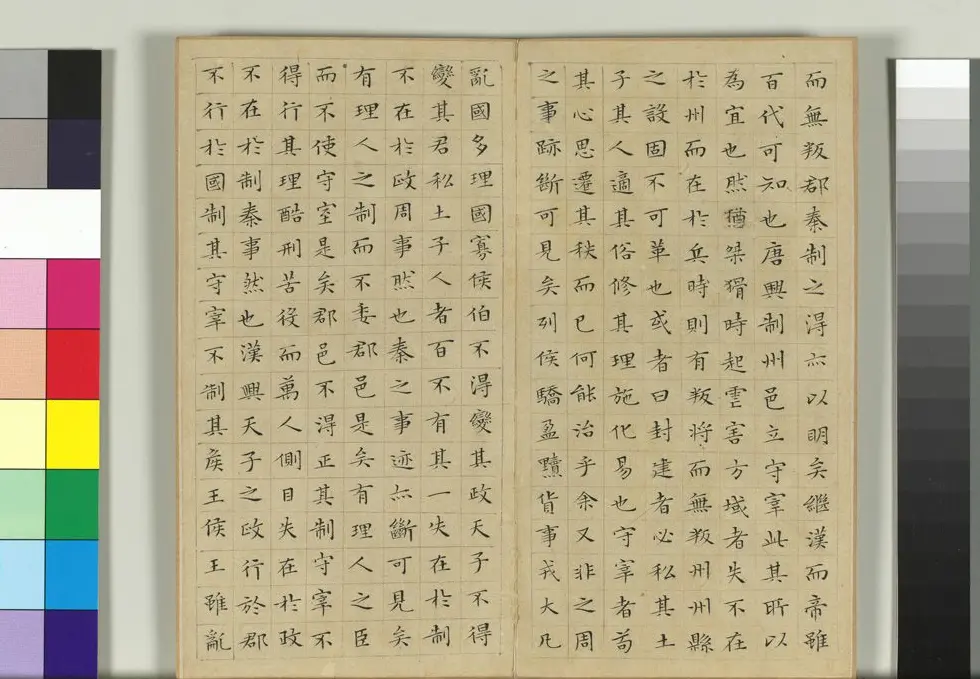 而無叛郡秦制之得亦以明矣繼漢而帝雖
百代可知也唐興制州邑立守宰此其所以
為宜也然猶桀猾時起雲害方域者失不在
於州而在於兵時則有叛將而無叛州州縣
之設固不可革也或者曰封建者必私其土
子其人適其俗修其理施化易也守宰者苟
其心思遷其秩而已何能治乎余又非之周
之事跡斷可見矣列侯驕盈黷貨事戎大凡
亂國多理國寡侯伯不得變其政天子不得
變其君私土子人者百不有其一失在於制
不在於政周事然也秦之事迹亦斷可見矣
有理人之制而不委郡邑是矣有理人之臣
而不使守室是矣郡邑不得正其制守宰不
得行其理酷刑苦役而萬人側目失在於政
不在於制秦事然也漢興天子之政行於郡
不行於國制其守宰不制其侯王侯王雖亂